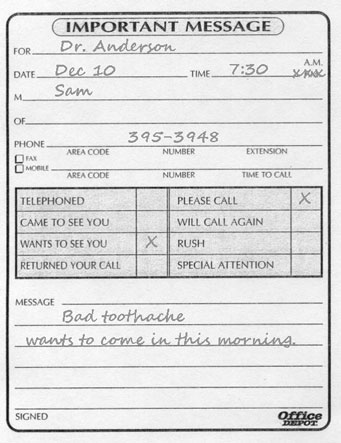 IMPORTANT MESSAGE
FOR Dr. Anderson
A.M.
DATE Dec 10 TIME 7:30
M Sam
OF
PHONE 395-3948
FAX AREA CODE NUMBER EXTENSION
MOBILE
AREA CODE NUMBER TIME TO CALL
TELEPHONED PLEASE CALL X
CAME TO SEE YOU WILL CALL AGAIN
WANTS TO SEE YOU X RUSH
RETURNED YOUR CALL SPECIAL ATTENTION
MESSAGE
Bad toothache
wants to come in this morning.
SIGNED Office DEPOT.